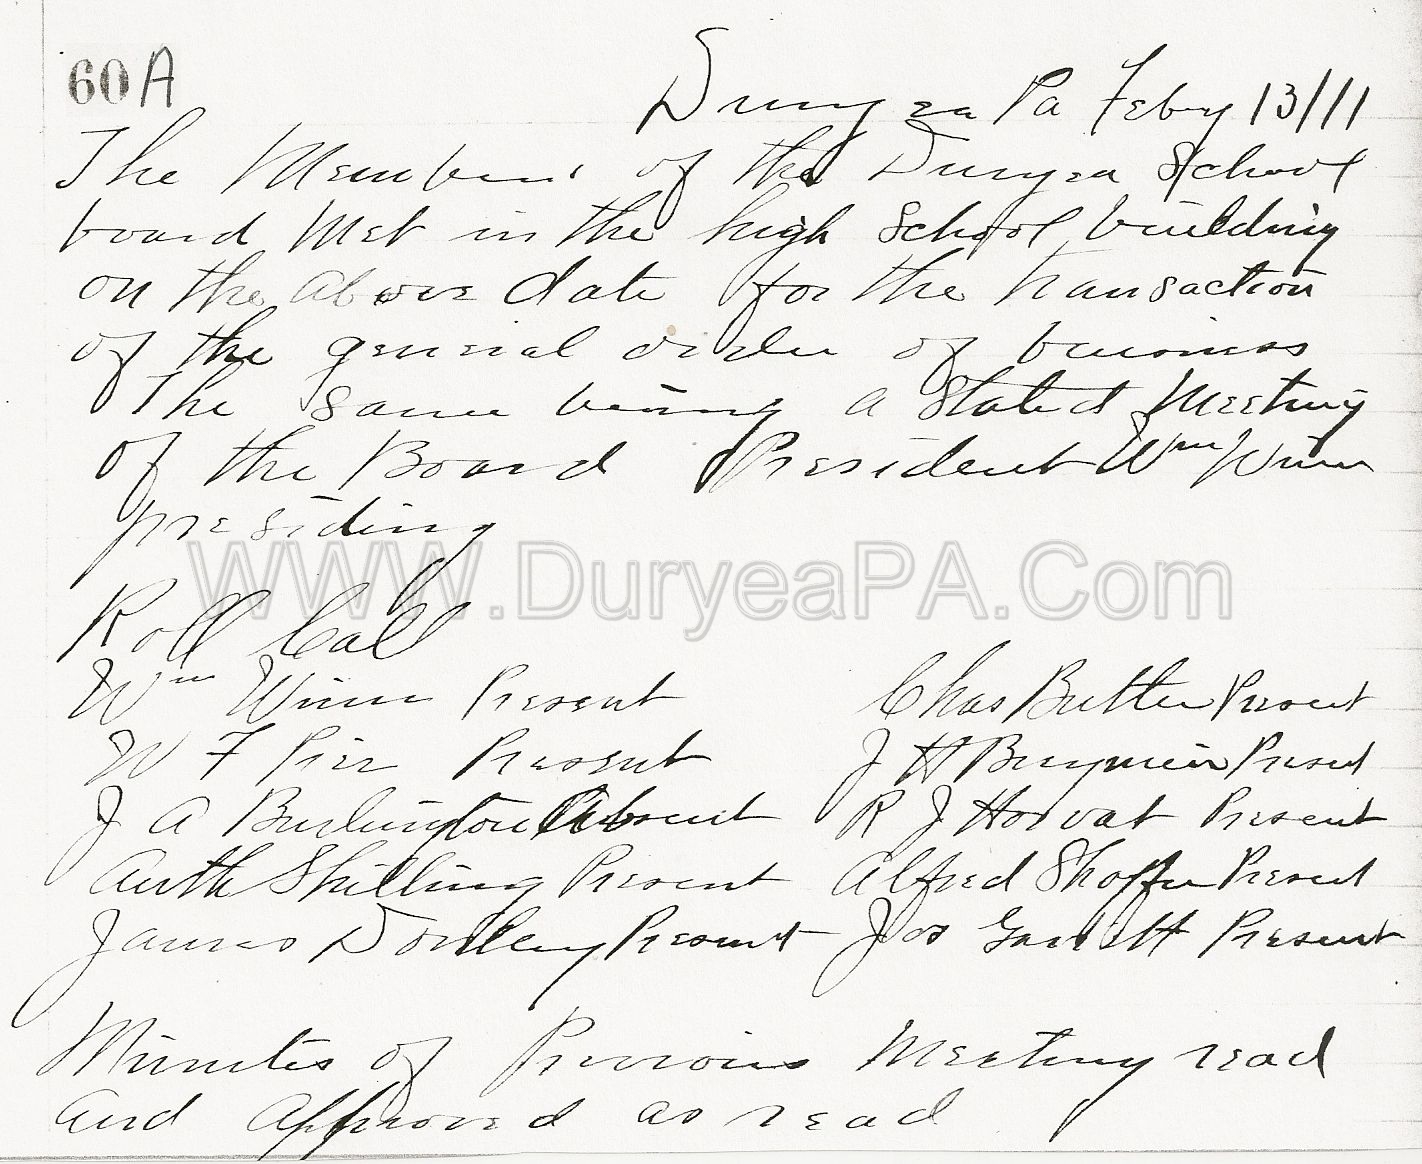 60A
Duryea Pa Feby 13/11
The Members of the Duryea School
board Met in the high School building
on the above date for the transaction
of the general order of business
The same being a Stated Meeting
of the Board President Wm Winn
presiding
WWW.DuryeaPA.Com
Roll Call
Wm Winn Present Chas Butler Present
W F Pier Present J H Bergmeir Present
J A Burlington Absent R J Horvat Present
Auth Skilling Present Alfred Shoffer Present
James Donley Present Jos Garrett Present
Minutes of Previous Meeting read
and Approved as read